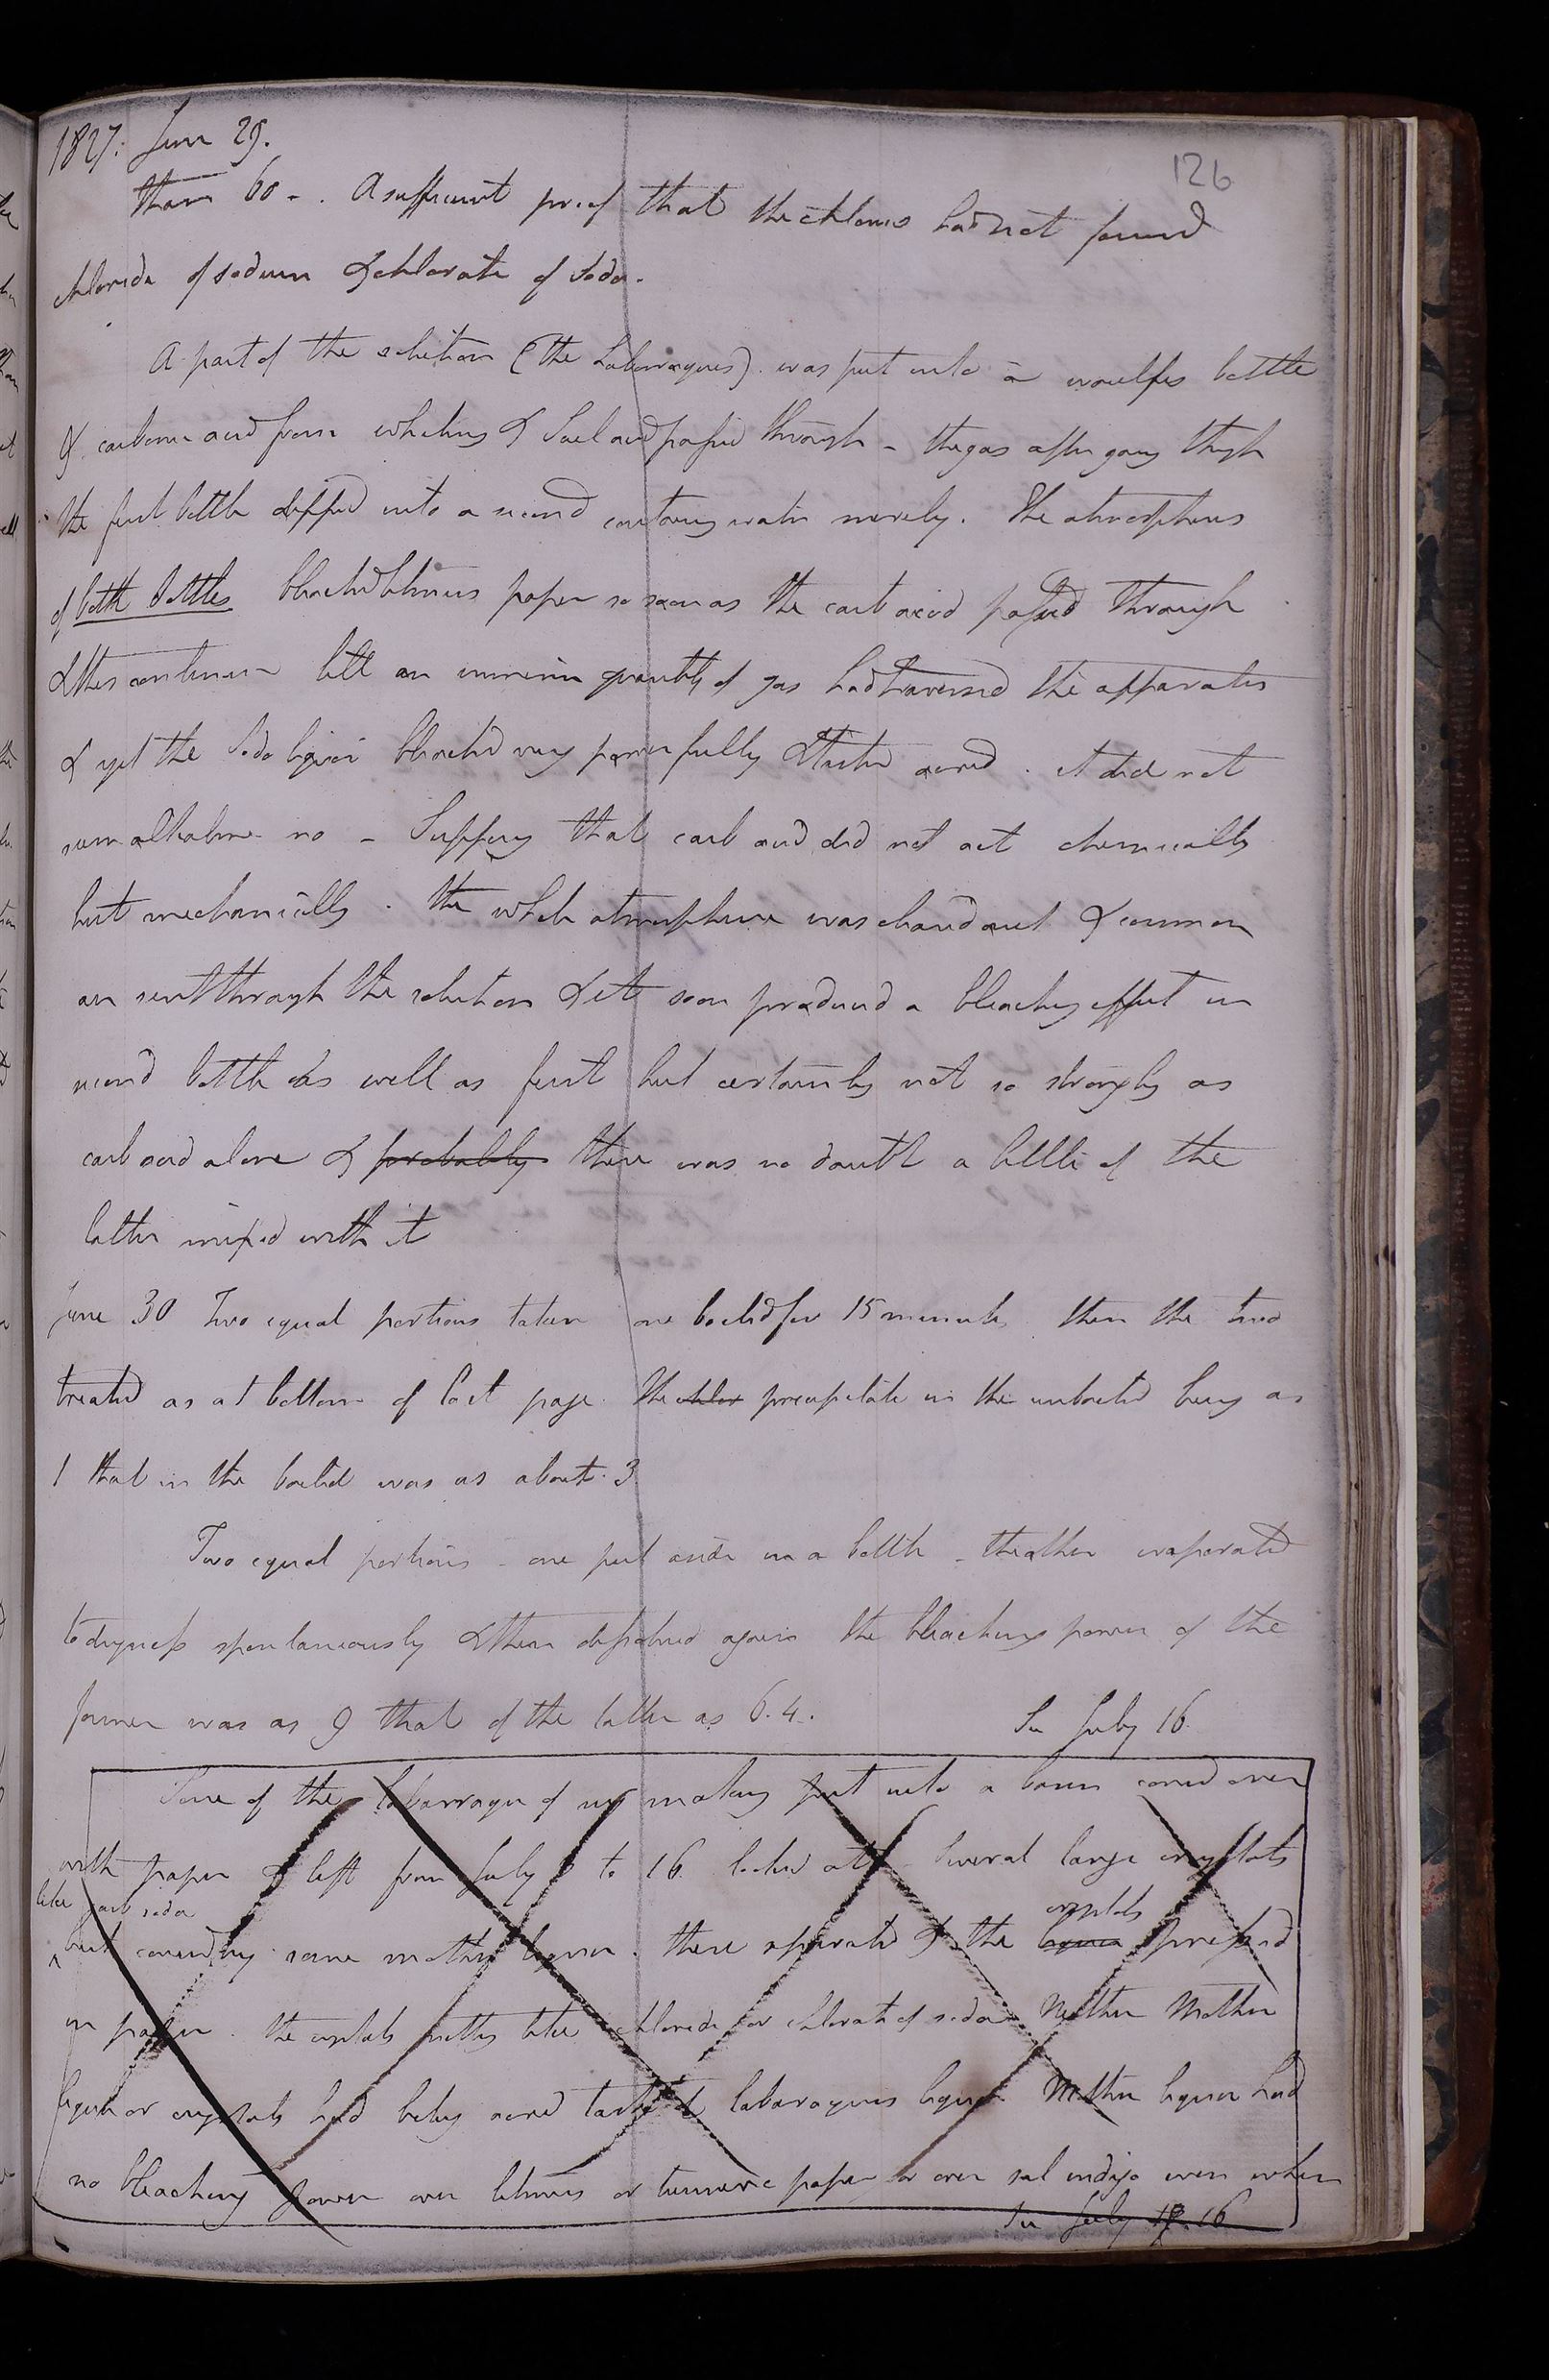 1827. June 29.
126
than 60 - . A sufficient proof that the chlorine had not formed
chloride of sodium & chlorate of soda.
A part of the solution (the Labarraques) was put into a woulfes bottle
& carbonic acid from whiting & Sul acid passed through - the gas after going through
the first bottle dipped into a second containing water merely. The atmospheres
of both bottles bleached litmus paper so soon as the carb acid passed through
& this continued till an immense quantity of gas had traversed the apparatus
& yet the Soda liquor bleached very powerfully & tasted acrid. it did not
seem alkaline no - Supposing that carb acid did not act chemically
but mechanically. the whole atmosphere was cleared out & common
air sent through the solution & it soon produced a bleaching effect in
second bottle as well as first but certainly not so strongly as
carb acid alone & probably there was no doubt a little of the
latter mixed with it
June 30 Two equal portions taken one boiled for 15 minutes then the two
treated as at bottom of last page. The chlor precipitate in the unboiled being as
1 that in the boiled was as about 3
Two equal portions - one put aside in a bottle - the other evaporated
to dryness spontaneously & then dissolved again the bleaching power of the
former was as 9 that of the latter as 6.4.
See July 16.
Some of the Labarraque of my making put into a basin covered over
with paper & left from July to 16. looked at - Several large crystals
like carb soda
crystals
but covered by some mother liquor. these separated & the liquor pressed
in paper. the crystals nothing like chloride or chlorate of soda Neither Mother
liquor or crystals had biting acrid taste of labaraques liquor. Mother liquor had
no bleaching power over litmus or turmeric paper or over sul indigo even when
See July 16